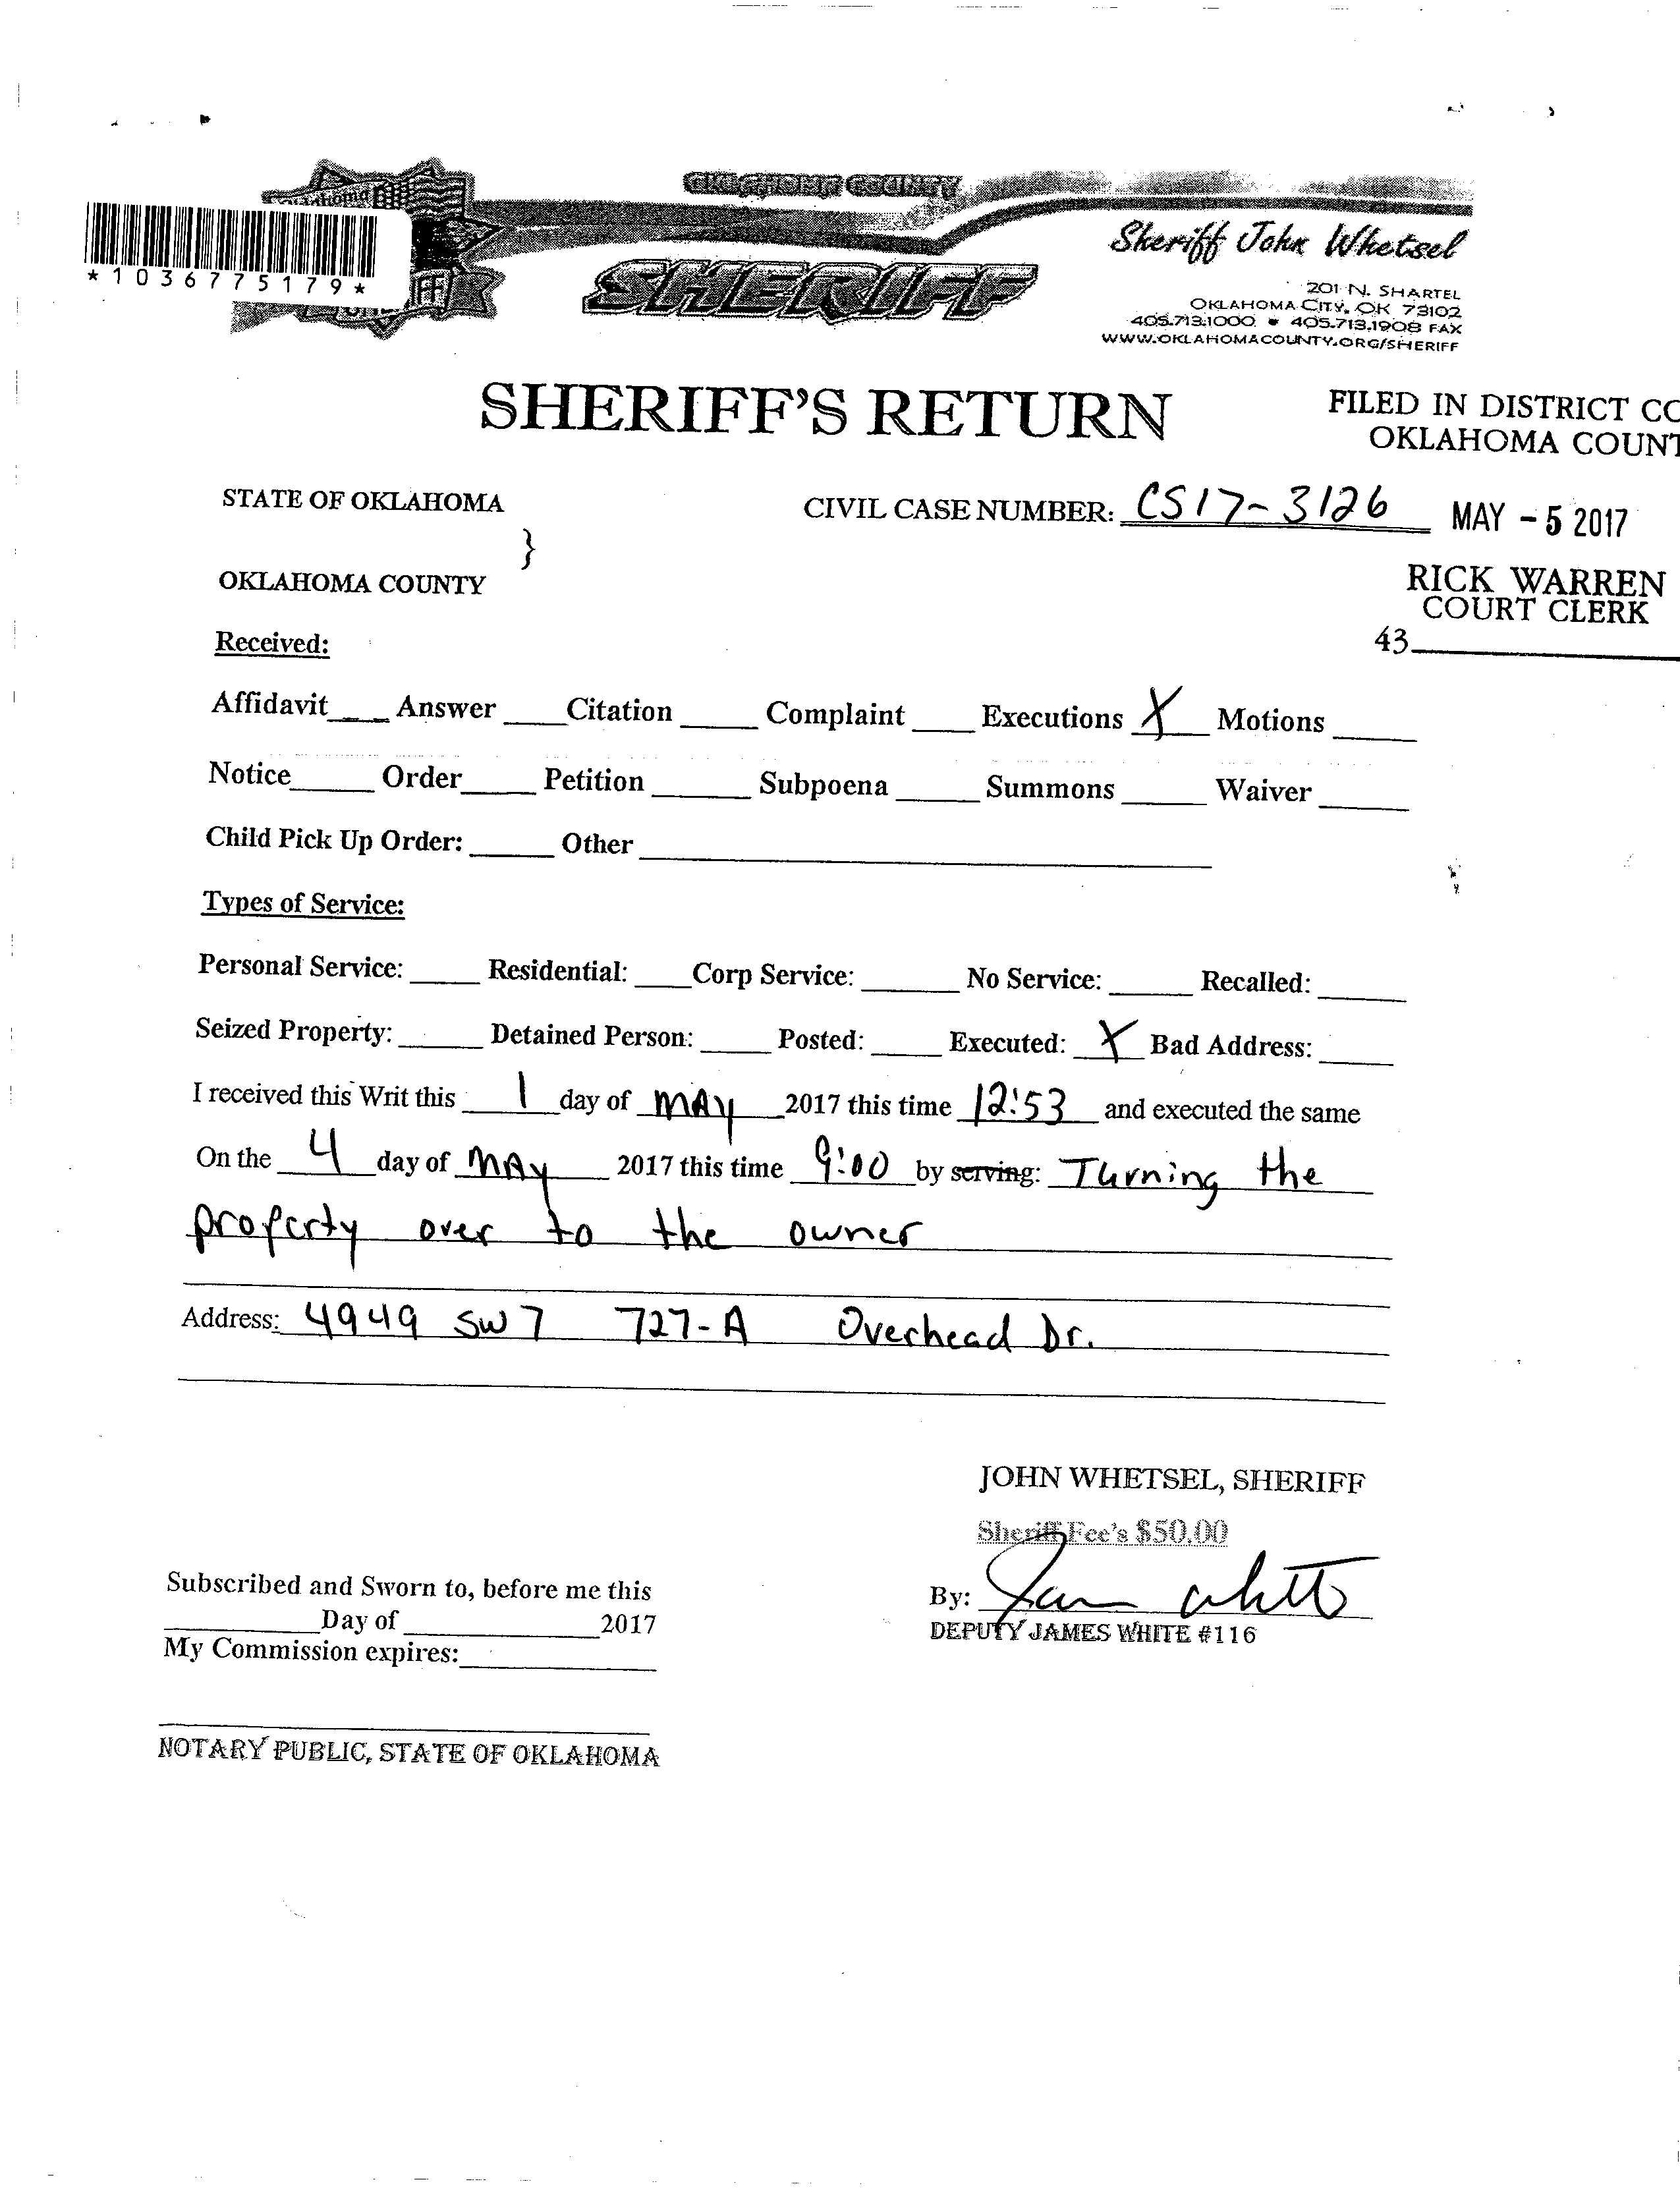 OKLAHOMA COUNTY
Sheriff John Whetsel
*1036775179*
SHERIFF
201 N. SHARTEL
OKLAHOMA CITY, OK 73102
405.713.1000 • 405.713.1908 FAX
WWW.OKLAHOMACOUNTY.ORG/SHERIFF
SHERIFF'S RETURN
FILED IN DISTRICT CO
OKLAHOMA COUNT
STATE OF OKLAHOMA
CIVIL CASE NUMBER: CS17-3126
MAY - 5 2017
}
OKLAHOMA COUNTY
RICK WARREN
COURT CLERK
43____
Received:
Affidavit____ Answer ____Citation ____ Complaint ____ Executions X Motions ____
Notice____ Order____ Petition ____ Subpoena ____ Summons ____ Waiver ____
Child Pick Up Order: ____ Other ____
Types of Service:
Personal Service: ____ Residential: ____Corp Service: ____ No Service: ____ Recalled: ____
Seized Property: ____ Detained Person: ____ Posted: ____ Executed: X Bad Address: ____
I received this Writ this 1 day of MAY 2017 this time 12:53 and executed the same
On the 4 day of MAY 2017 this time 9:00 by serving: Turning the
property over to the owner
Address: 4949 SW 7 727-A Overhead Dr.
JOHN WHETSEL, SHERIFF
Sheriff Fee's $50.00
Subscribed and Sworn to, before me this
____Day of ____2017
My Commission expires:____
By:
DEPUTY JAMES WHITE #116
NOTARY PUBLIC, STATE OF OKLAHOMA